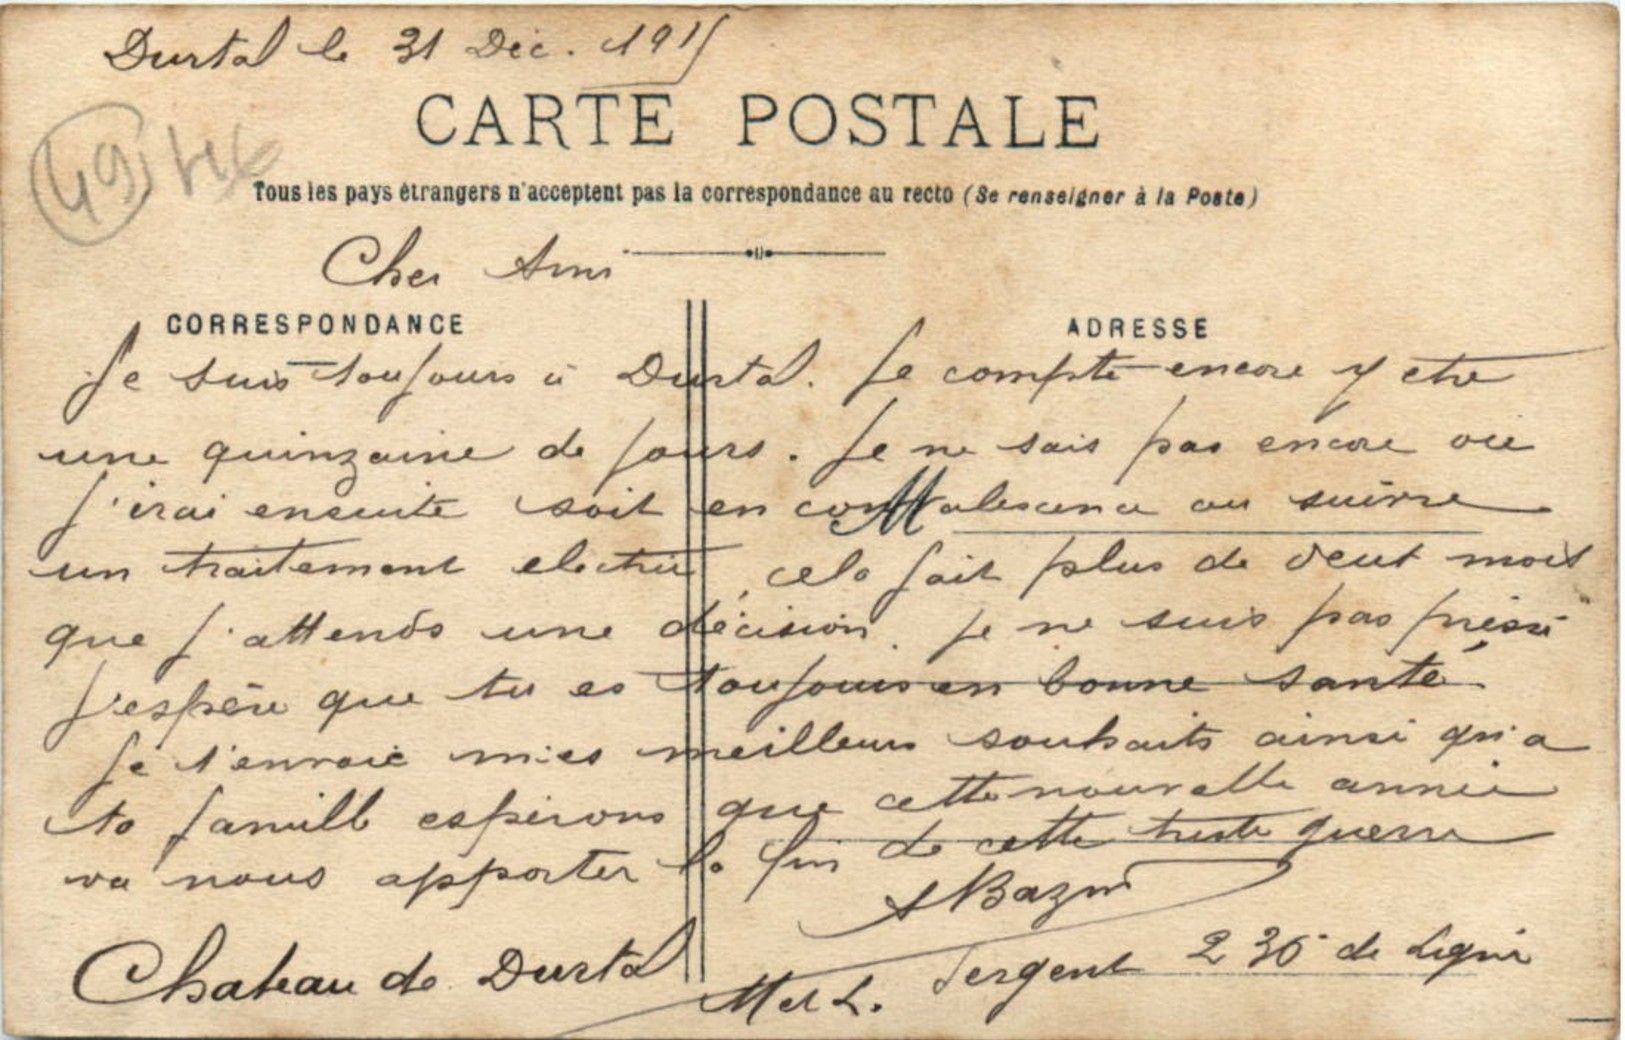 Durtal le 31 Déc. 1915
CARTE POSTALE
49
Tous les pays étrangers n'acceptent pas la correspondance au recto (Se renseigner à la Poste)
Cher Ami
CORRESPONDANCE
ADRESSE
Je suis toujours à Durtal. Je compte encore y etre
une quinzaine de jours. Je ne sais pas encore où
j'irai ensuite soit en convalescence ou suivre
M
un traitement electric, cela fait plus de deux mois
que j'attends une décision. je ne suis pas pressé
j'espère que tu es toujours en bonne santé
Je t'envoie mes meilleurs souhaits ainsi qu'a
ta famill espérons que cette nouvelle année
va nous apporter la fin de cette triste guerre
A Bazin
Chateau de Durtal
Sergent 236 de Ligne
M et L.